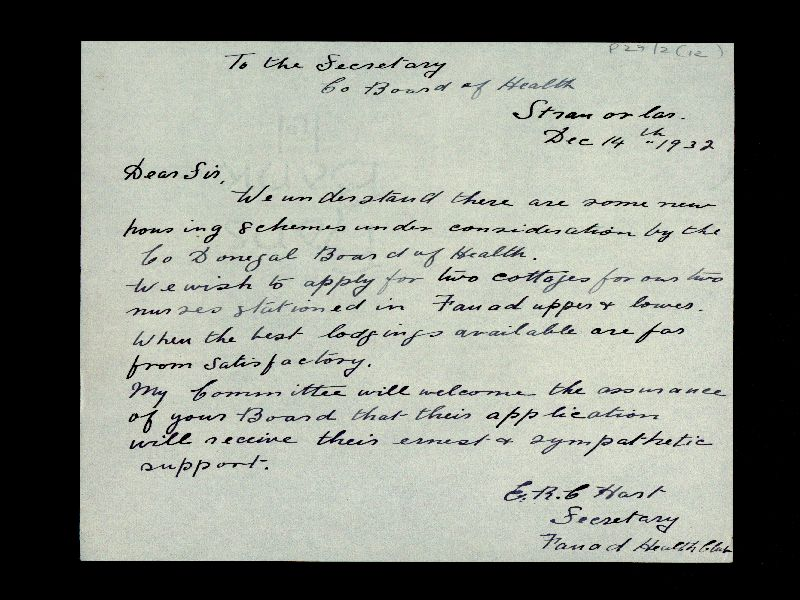 P27/2(12)
To the Secretary
Co Board of Health
Stranorlar.
Dec 14th 1932
Dear Sir,
We understand there are some new
housing schemes under consideration by the
Co Donegal Board of Health.
We wish to apply for two cottages for our two
nurses stationed in Fanad upper & lower.
When the best lodgings available are far
from satisfactory.
My Committee will welcome the assurance
of your Board that their application
will receive their ernest & sympathetic
support.
E. R. C Hart
Secretary
Fanad Health Club